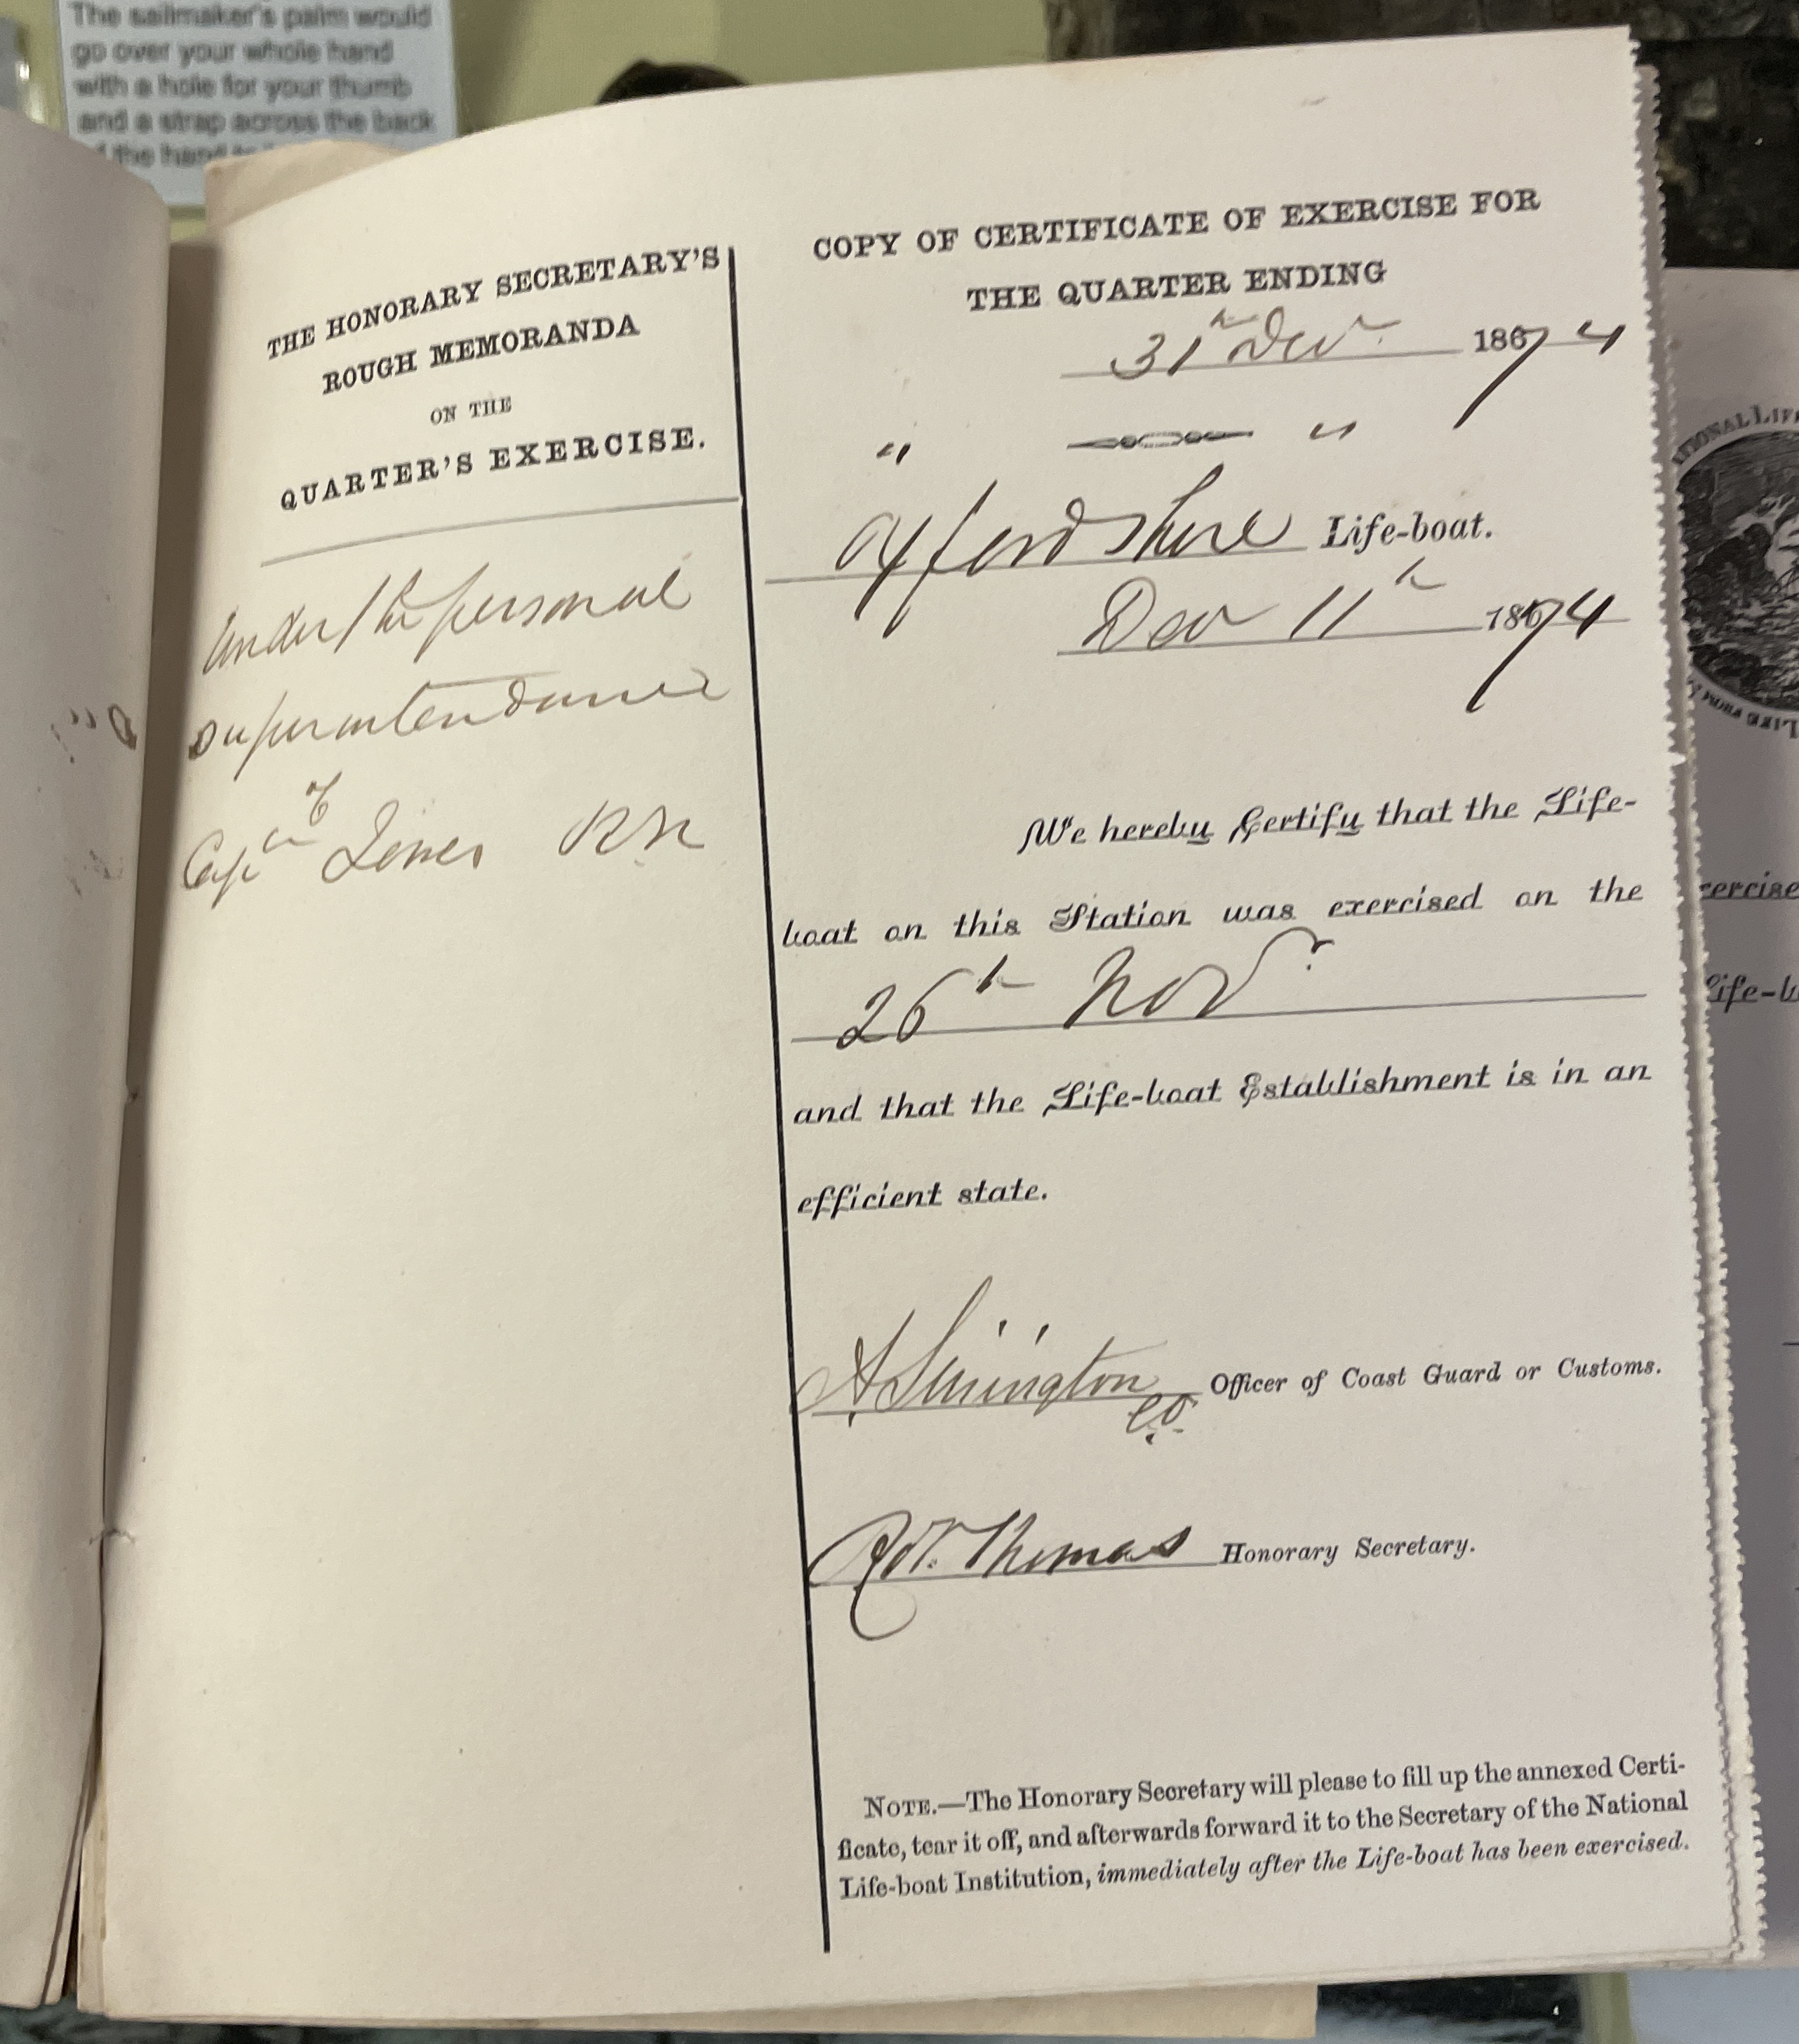 The sailmaker's palm would
go over your whole hand
with a hole for your thumb
and a strap across the back
of the hand
THE HONORARY SECRETARY'S
ROUGH MEMORANDA
ON THE
QUARTER'S EXERCISE.
Under the personal
superintendance
of
Captn Jones RN
COPY OF CERTIFICATE OF EXERCISE FOR
THE QUARTER ENDING
31st Decr. 1874
" "
Oxfordshire Life-boat.
Decr 11th 1874
We hereby Certify that the Life-
boat on this Station was exercised on the
26th Novr
and that the Life-boat Establishment is in an
efficient state.
Officer of Coast Guard or Customs.
Robt. Thomas Honorary Secretary.
NOTE.—The Honorary Secretary will please to fill up the annexed Certi-
ficate, tear it off, and afterwards forward it to the Secretary of the National
Life-boat Institution, immediately after the Life-boat has been exercised.